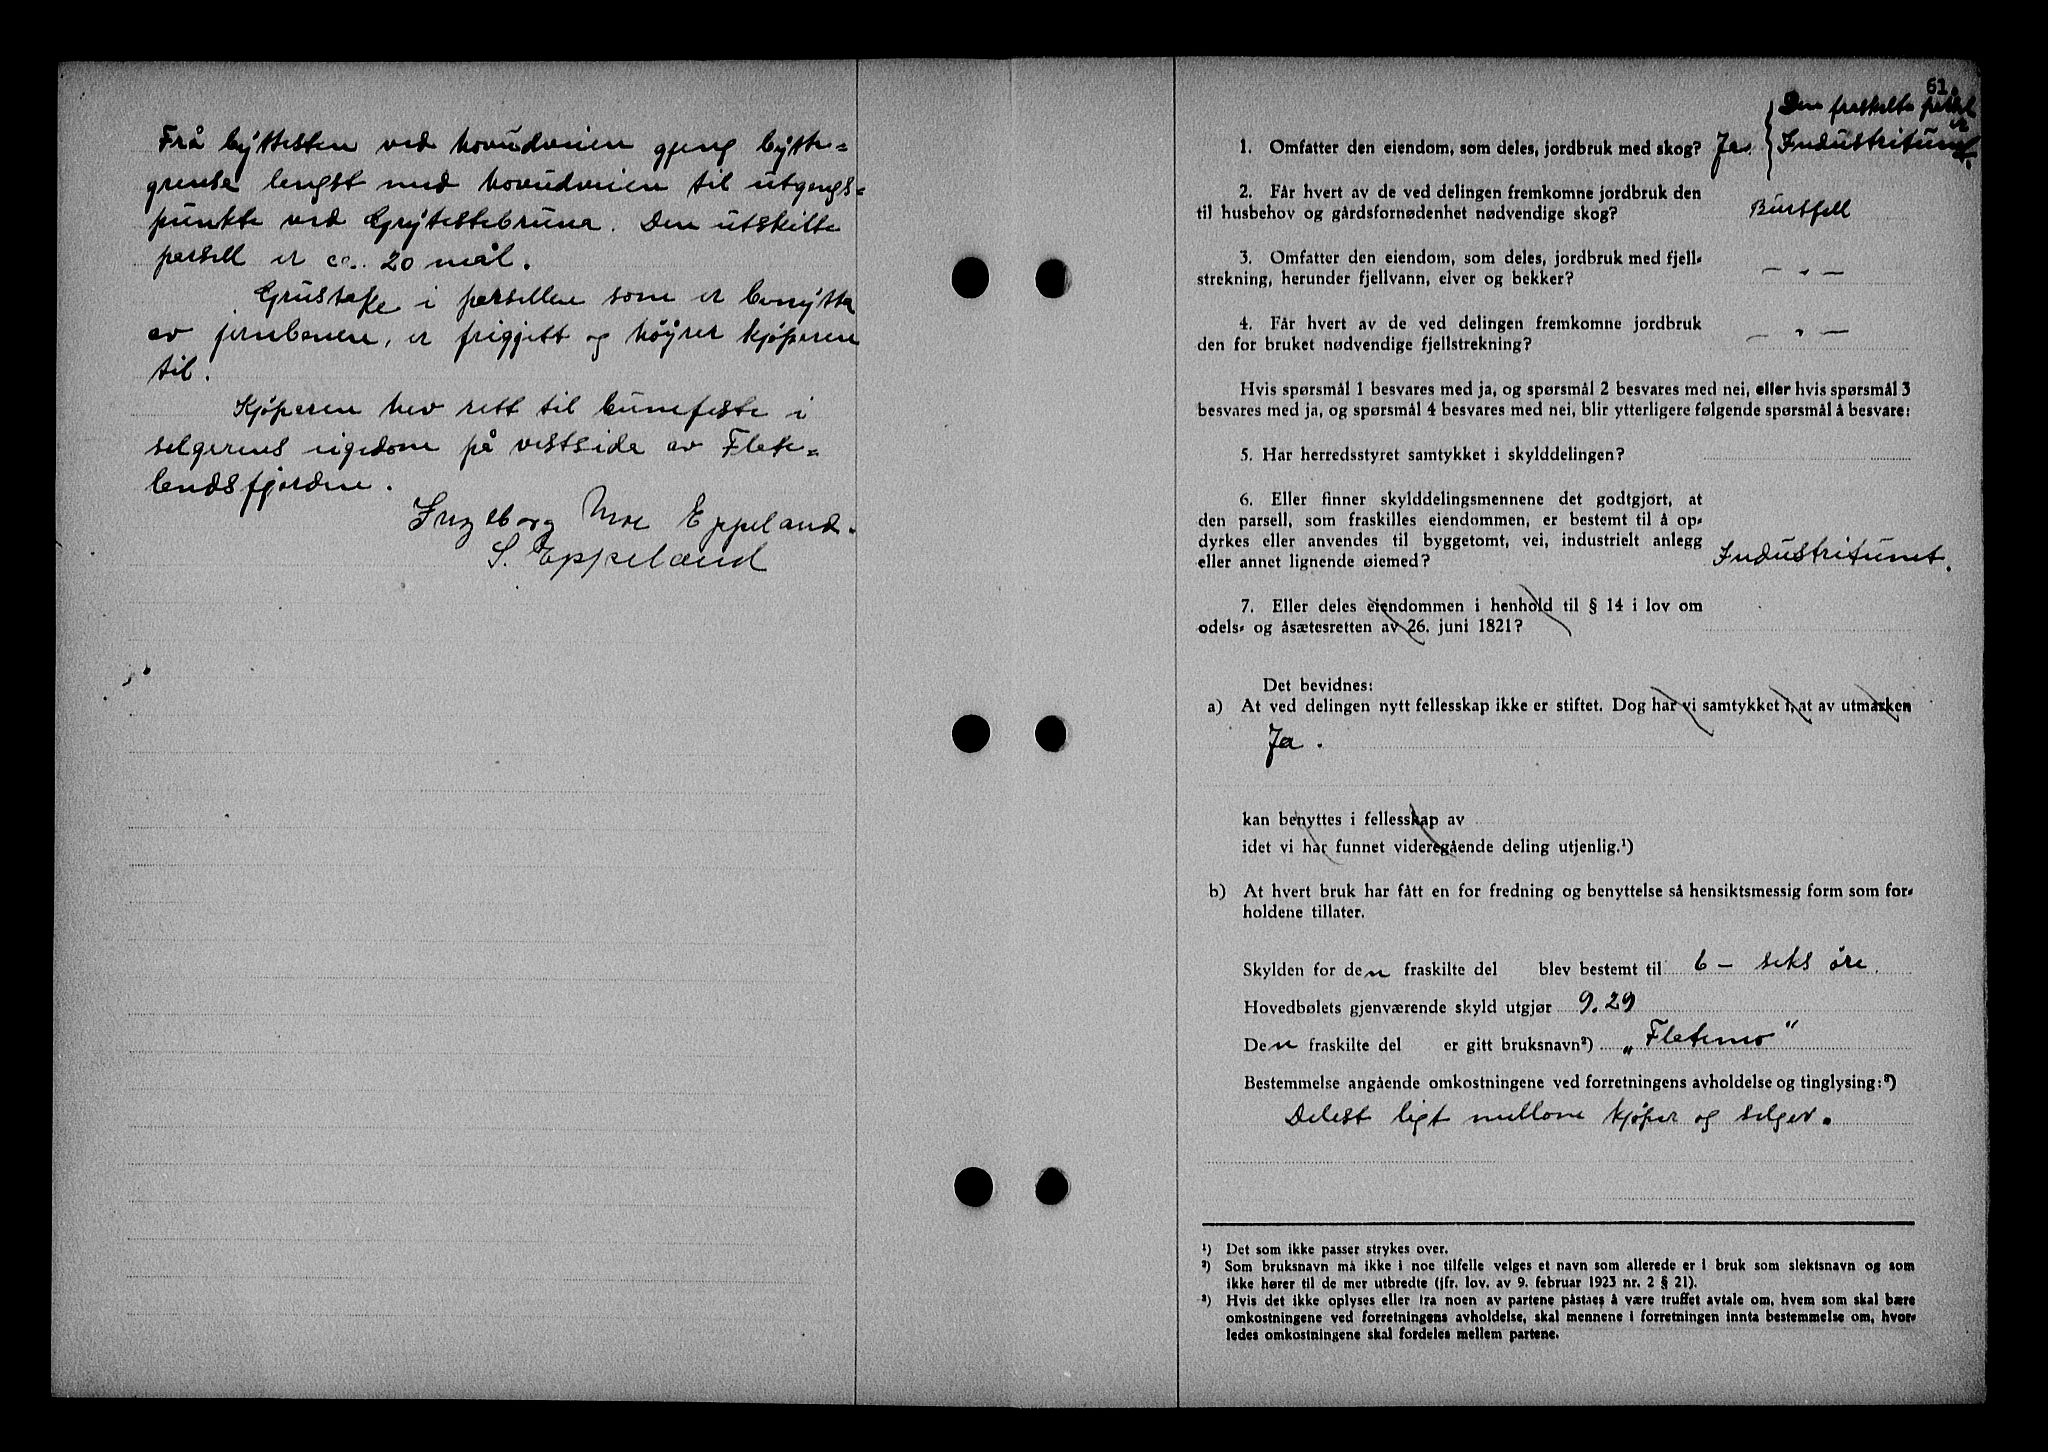 Frå byttesten ved hovudveien gjeng bytte=
grensa lengst med hovudveien til utgangs=
punkte ved Grytestebruna. Den utskilte
parsell er ca. 20 mål.
Grustake i parsellen som er benytta
av jernbanen, er frigjett og höyrer kjøperen
til.
Kjøperen hev rett til bunefeste i
selgerens eigedom på vestsida av Flete=
landsfjorden.
Ingeborg Moe Eppeland.
S. Eppeland
61.
Den fraskilte parsell
er
1. Omfatter den eiendom, som deles, jordbruk med skog? Ja. Industritunet.
2. Får hvert av de ved delingen fremkomne jordbruk den
til husbehov og gårdsfornødenhet nødvendige skog? Burtfell
3. Omfatter den eiendom, som deles, jordbruk med fjell-
strekning, herunder fjellvann, elver og bekker? — „ —
4. Får hvert av de ved delingen fremkomne jordbruk
den for bruket nødvendige fjellstrekning? — „ —
Hvis spørsmål 1 besvares med ja, og spørsmål 2 besvares med nei, eller hvis spørsmål 3
besvares med ja, og spørsmål 4 besvares med nei, blir ytterligere følgende spørsmål å besvare:
5. Har herredsstyret samtykket i skylddelingen?
6. Eller finner skylddelingsmennene det godtgjort, at
den parsell, som fraskilles eiendommen, er bestemt til å op-
dyrkes eller anvendes til byggetomt, vei, industrielt anlegg
eller annet lignende øiemed? Industritunet.
7. Eller deles eiendommen i henhold til § 14 i lov om
odels- og åsætesretten av 26. juni 1821?
Det bevidnes:
a) At ved delingen nytt fellesskap ikke er stiftet. Dog har vi samtykket i, at av utmarken
Ja.
kan benyttes i fellesskap av
idet vi har funnet videregående deling utjenlig.¹)
b) At hvert bruk har fått en for fredning og benyttelse så hensiktsmessig form som for-
holdene tillater.
Skylden for den fraskilte del blev bestemt til 6 — seks øre
Hovedbølets gjenværende skyld utgjør 9.29
Den fraskilte del er gitt bruksnavn²) „Fletemo"
Bestemmelse angående omkostningene ved forretningens avholdelse og tinglysing:³)
Delest ligt mellom kjøper og selger.
¹) Det som ikke passer strykes over.
²) Som bruksnavn må ikke i noe tilfelle velges et navn som allerede er i bruk som slektsnavn og som
ikke hører til de mer utbredte (jfr. lov. av 9. februar 1923 nr. 2 § 21).
³) Hvis det ikke oplyses eller fra noen av partene påstaes å være truffet avtale om, hvem som skal bære
omkostningene ved forretningens avholdelse, skal mennene i forretningen innta bestemmelse om, hvor-
ledes omkostningene skal fordeles mellem partene.